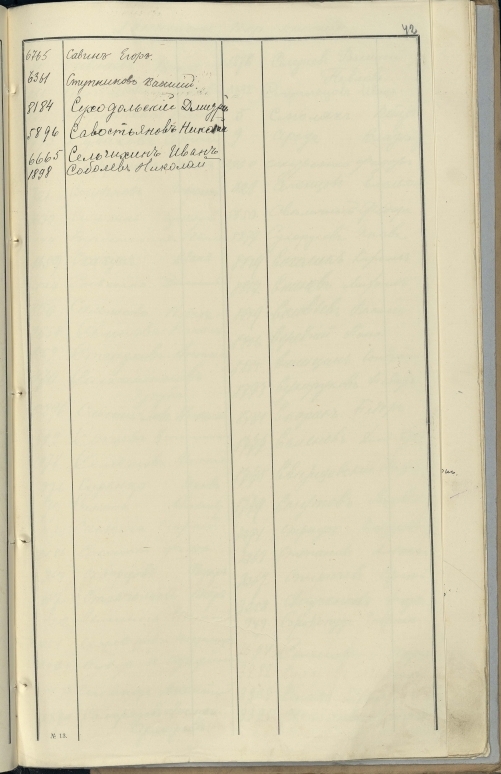 42
6765 Савинъ Егоръ
6361 Ступниковъ Василий
8184 Суходольский Дмитрий
5896 Савостьяновъ Николай
6665 Сельчихинъ Иванъ
1898 Соболевъ Николай
№ 13.